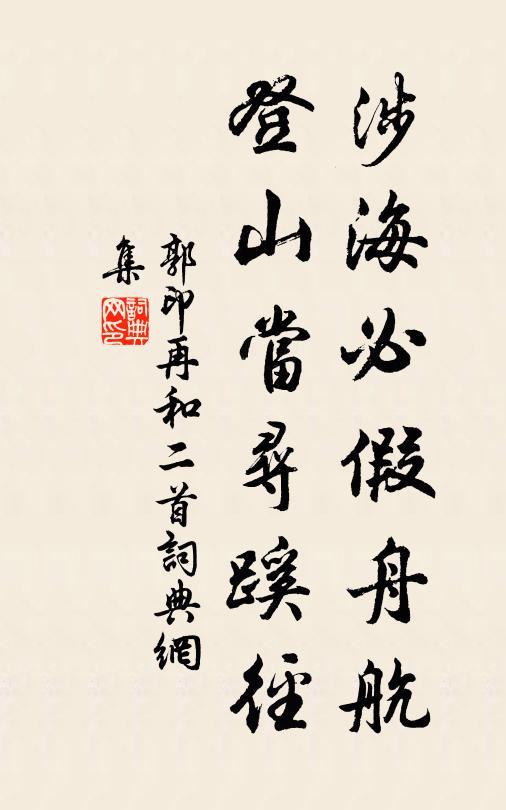 涉海必假舟航
登山當尋蹊徑
郭印再和二首詞典網
集
詞典網印